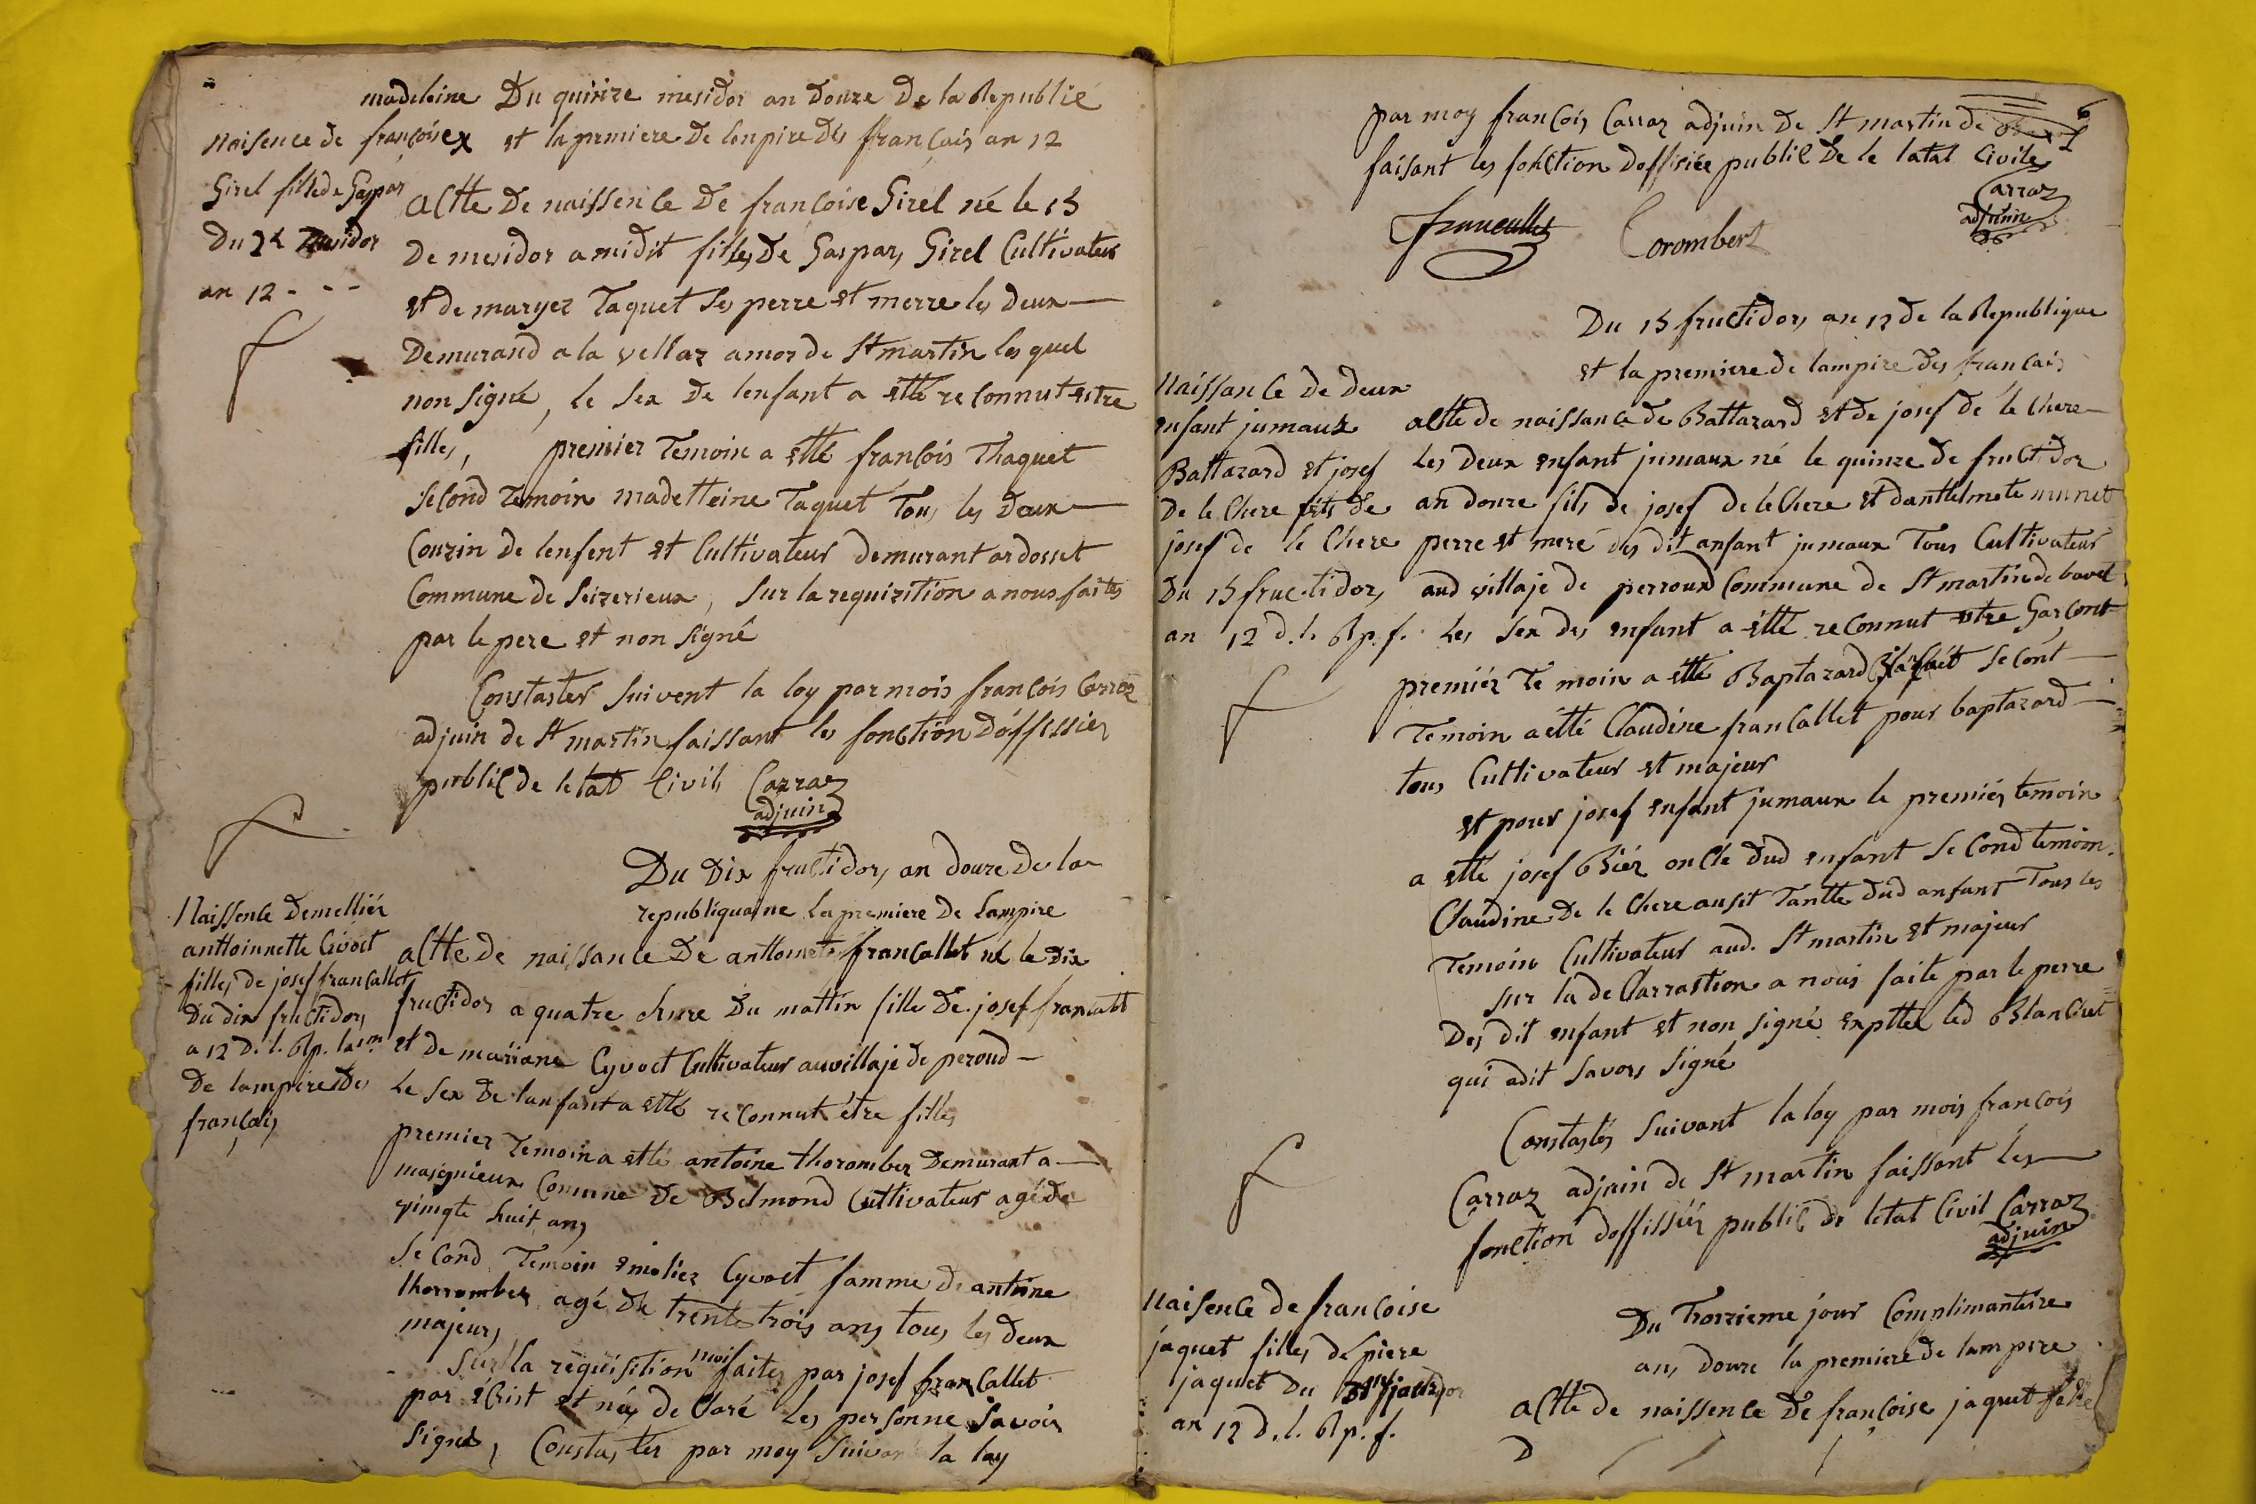 madeleine Du quinze mesidor an douze De la Republie
naisence de françoisex et la premiere de lenpire des français an 12
Girel fille de Gaspar
Du
an 12 - - -
actte De naissence De francoise Girel né le 15
De mesidor a midit filles De Gaspar, Girel Cultivateur
et de maryer Taquet ses perre et merre les deux
Demurand a la vellaz amor de St martin les quel
non signé, le sex De lenfant a etté reconnut estre
filles, premier Temoin a etté françois Thaquet
second Temoin madetteine Taquet Tous les deux
Couzin de lenfent et Cultivateur demurant ardosset
Commune de Seizerieux, sur la requizition a nous faites
par le pere et non signé
Constaster suivent la loy par mois françois Carraz
adjuin de St martin faissant les fonction Doffissier
public de letat Civil Carraz
adjuin
Du Dix fructidor, an douze de la
republiquaine la premiere De Lampire
Naissence Demelliér
anttoinnette Civoct
filles de josef francallet
Du dix fructidor,
a 12 D. l. Rp. la 1m
De lampire des
français
actte De naissance De anttonete francallet né le Dix
fructidor a quatre hure Du mattin fille De josef francallet
et de mariane Cyvoct Cultivateur au villaje de peroud
Le sex De lanfant a etté reconnut être filles
premier Temoin a etté antoine thorombez Demurant a
masignieux Comune De Belmond Cultivateur agé de
vingte huit ans
Second Temoin emeliez Cyvoct famme de antoine
thorrombez agé de trente trois ans tous les deux
majeurs
Sur la requisition moi faites par josef francallet
par écrist et nées de Claré les personne savoir
signé, Constaster par moy suivant la loy
6
par moy françois Carraz adjuin de St martin de
faisant les fonction dofficiée public De le latat Civile
Carraz
adjuin
francallet Corombert
Du 15 fructidor, an 12 de la Republique
et la premiere de lampire des français
Naissance de deux
enfant jumaux
Battazard et josef
De le Chere fils de
josef de le Chere
Du 15 fructidor,
an 12 d. l. Rp. f.
actte de naissance de Battazard et de josef de le Chere
Les Deux enfant jumaux né le quinze de fructidor
an douze fils de josef De le Chere et danthelmete munet
perre et mere des dit anfant jumeaux Tous Cultivateur
aud villaje de perroud Commune de St martin de bavel
Les sex des enfant a etté reconnut etre Garçont
premiér Te moin a etté Baptazard secont
Temoin a etté Claudine francallet pour baptazard
tous Cultivateur et majeur
et pour josef enfant jumaux le premiér temoin
a etté josef Biéz oncle dud enfant second temoin
Claudine De le Chere ausit Tantte dud anfant Tous les
Temoin Cultivateur aud. St martin et majeur
sur la de Clarrastion a nous faite par le perre
Des dit enfant et non signé exptté led Blanchet
qui a dit Savoir signé
Constastés suivant la loy par mois françois
Carraz adjuin de St martin faissant les
fonction doffissiér public de letat Civil Carraz
adjuin
Naisence de francoise
jaquet filles de piere
jaquet du
an 12 D. l. Rp. f.
Du Troizieme jour Complimantaire
an, douze la premiere de lampire
actte de naissence De françoise jaquet fille
D